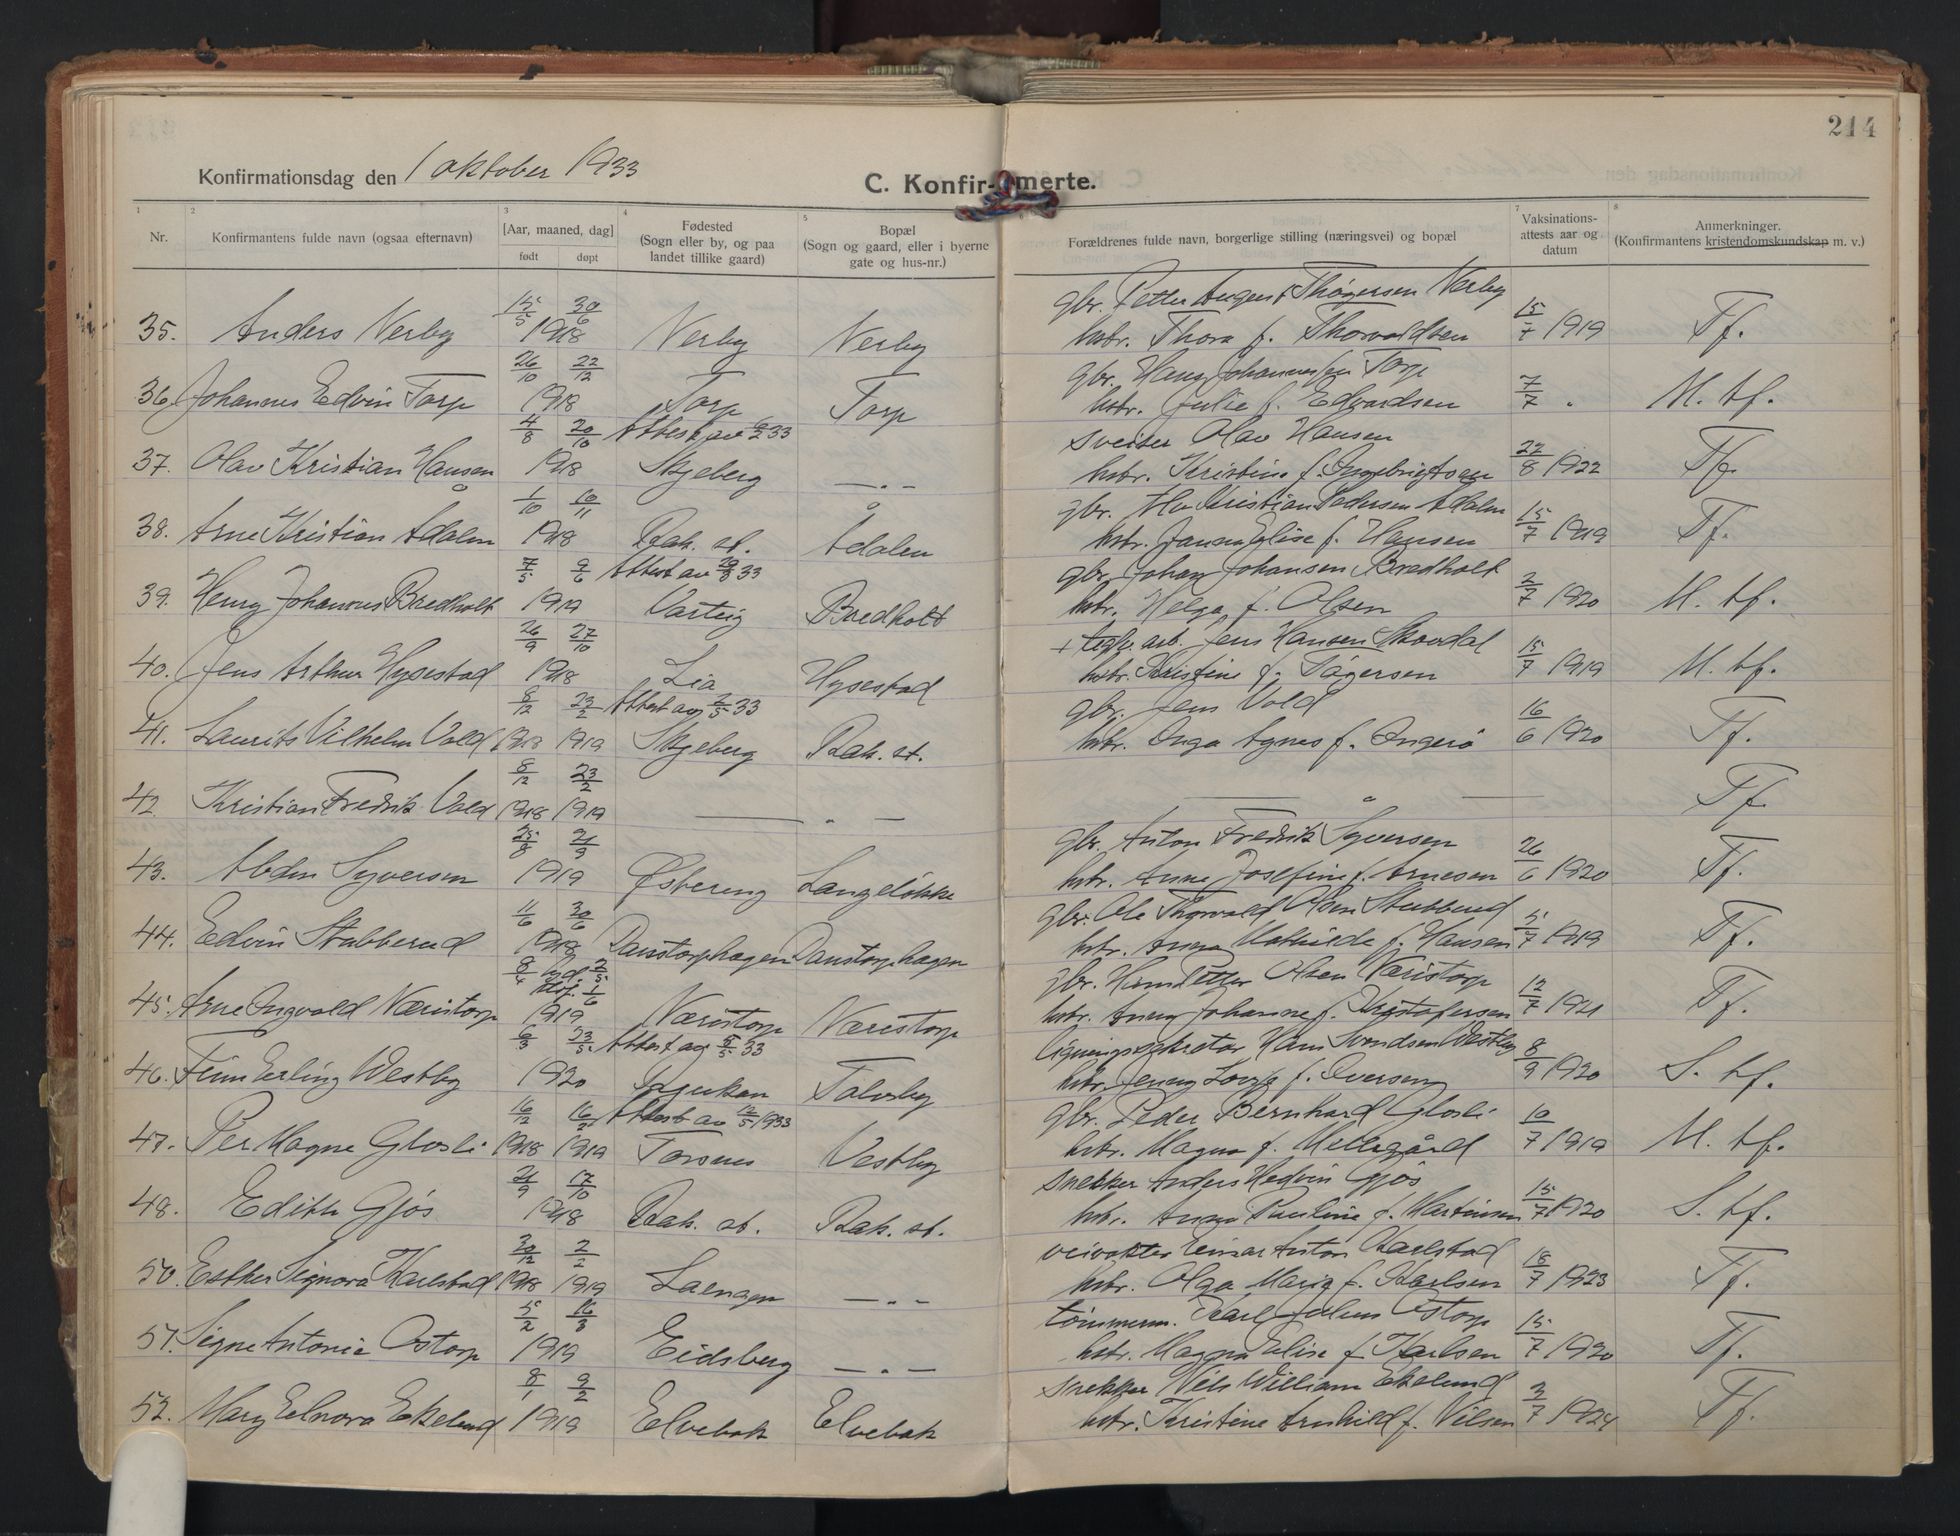 214
Konfirmationsdag den 1 oktober 1933
C. Konfir- merte.
1 2 3 4 5 6 7 8
Nr. Konfirmantens fulde navn (ogsaa efternavn) [Aar, maaned, dag] født døpt Fødested (Sogn eller by, og paa landet tillike gaard) Bopæl (Sogn og gaard, eller i byerne gate og hus-nr.) Forældrenes fulde navn, borgerlige stilling (næringsvei) og bopæl Vaksinations-attests aar og datum Anmerkninger. (Konfirmantens kristendomskundskap m. v.)
15/5 30/6 gbr. Petter August Thøgersen Nerby
35. Anders Nerby 1918 Nerby Nerby hstr. Thora f. Thorvaldsen 15/7 1919 Tf.
26/10 22/12 gbr. Hans Johannessen Torp
36. Johannes Edvin Torp 1918 Torp Torp hstr. Julie f. Edvardsen 7/7 " M. tf.
4/8 20/10 Attest av 33 sveiser Olav Hansen
37. Olav Kristian Hansen 1918 Skjeberg — " — hstr. Kristine f. Ingebrigtsen 22/8 1922 Tf.
1/10 10/11 gbr. Kristian Pedersen Ådalen
38. Arne Kristian Ådalen 1918 Rak. st. Ådalen hstr. Elise f. Hansen 15/7 1919 Tf.
7/5 9/6 Attest av 33 gbr. Johan Johansen Bredholt
39. Henry Johannes Bredholt 1919 Varteig Bredholt hstr. Helga f. Olsen 2/7 1920 M. tf.
26/9 27/10 + teglv. arb. Jens Hansen Skovdal
40. Jens Arthur Hysestad 1918 Lia Hysestad hstr. Kristine f. 15/7 1919 M. tf.
8/12 23/2 Attest av 2/5 33 gbr. Jens Vold
41. Laurits Vilhelm Vold 1918 1919 Skjeberg Rak. st. hstr. Inga Agnes f. Ingerø 16/6 1920 Tf.
8/12 23/2
42. Kristian Fredrik Vold 1918 1919 — " — — " — Tf.
25/8 21/9 gbr. Anton Fredrik Syversen
43. Abdon Syversen 1919 Østereng Langeløkke hstr. Anne Josefine f. Arnesen 26/6 1920 Tf.
11/6 30/6 gbr. Ole Thorvald Olsen Stubberud
44. Edvin Stubberud 1918 Danstorphagen Danstorphagen hstr. Anna Mathilde f. Hansen 5/7 1919 Tf.
8/4 2/5 1/6 gbr. Hans Petter Olsen Næristorp
45. Arne Ingvald Næristorp 1919 Næristorp Næristorp hstr. Anna Johanne f. Kristofersen 12/7 1921 Tf.
6/3 23/5 Attest av 5/5 33 ligningssekretær Hans Svendsen Westby
46. Finn Erling Westby 1920 Rjukan Talvsby hstr. Jenny Lovise f. Iversen 8/9 1920 S. tf.
16/12 16/2 Attest av 12/5 1933 gbr. Peder Bernhard Glosli
47. Per Magne Glosli 1918 1919 Torsnes Vestby hstr. Magna f. Mellegård 10/7 1919 M. tf.
21/9 17/10 snekker Anders Hedvin Gjøs
48. Edith Gjøs 1918 Rak. st. Rak. st. hstr. Anna Pauline f. Martinsen 15/7 1920 S. tf.
30/12 2/2 veivokter Einar Anton Karlstad
50. Esther Signora Karlstad 1918 1919 Laengen — " — hstr. Olga Marie f. Karlsen 18/7 1923 Tf.
5/2 16/3 tømmerm. Karl Julius Ostorp
51. Signe Antonie Ostorp 1919 Eidsberg — " — hstr. Magna Elise f. Karlsen 15/7 1920 Tf.
8/1 9/2 snekker Nils William Ekelund
52. Mary Elnora Ekelund 1919 Elvebak Elvebak hstr. Kristine Arnhild f. Nilsen 3/7 1924 Tf.